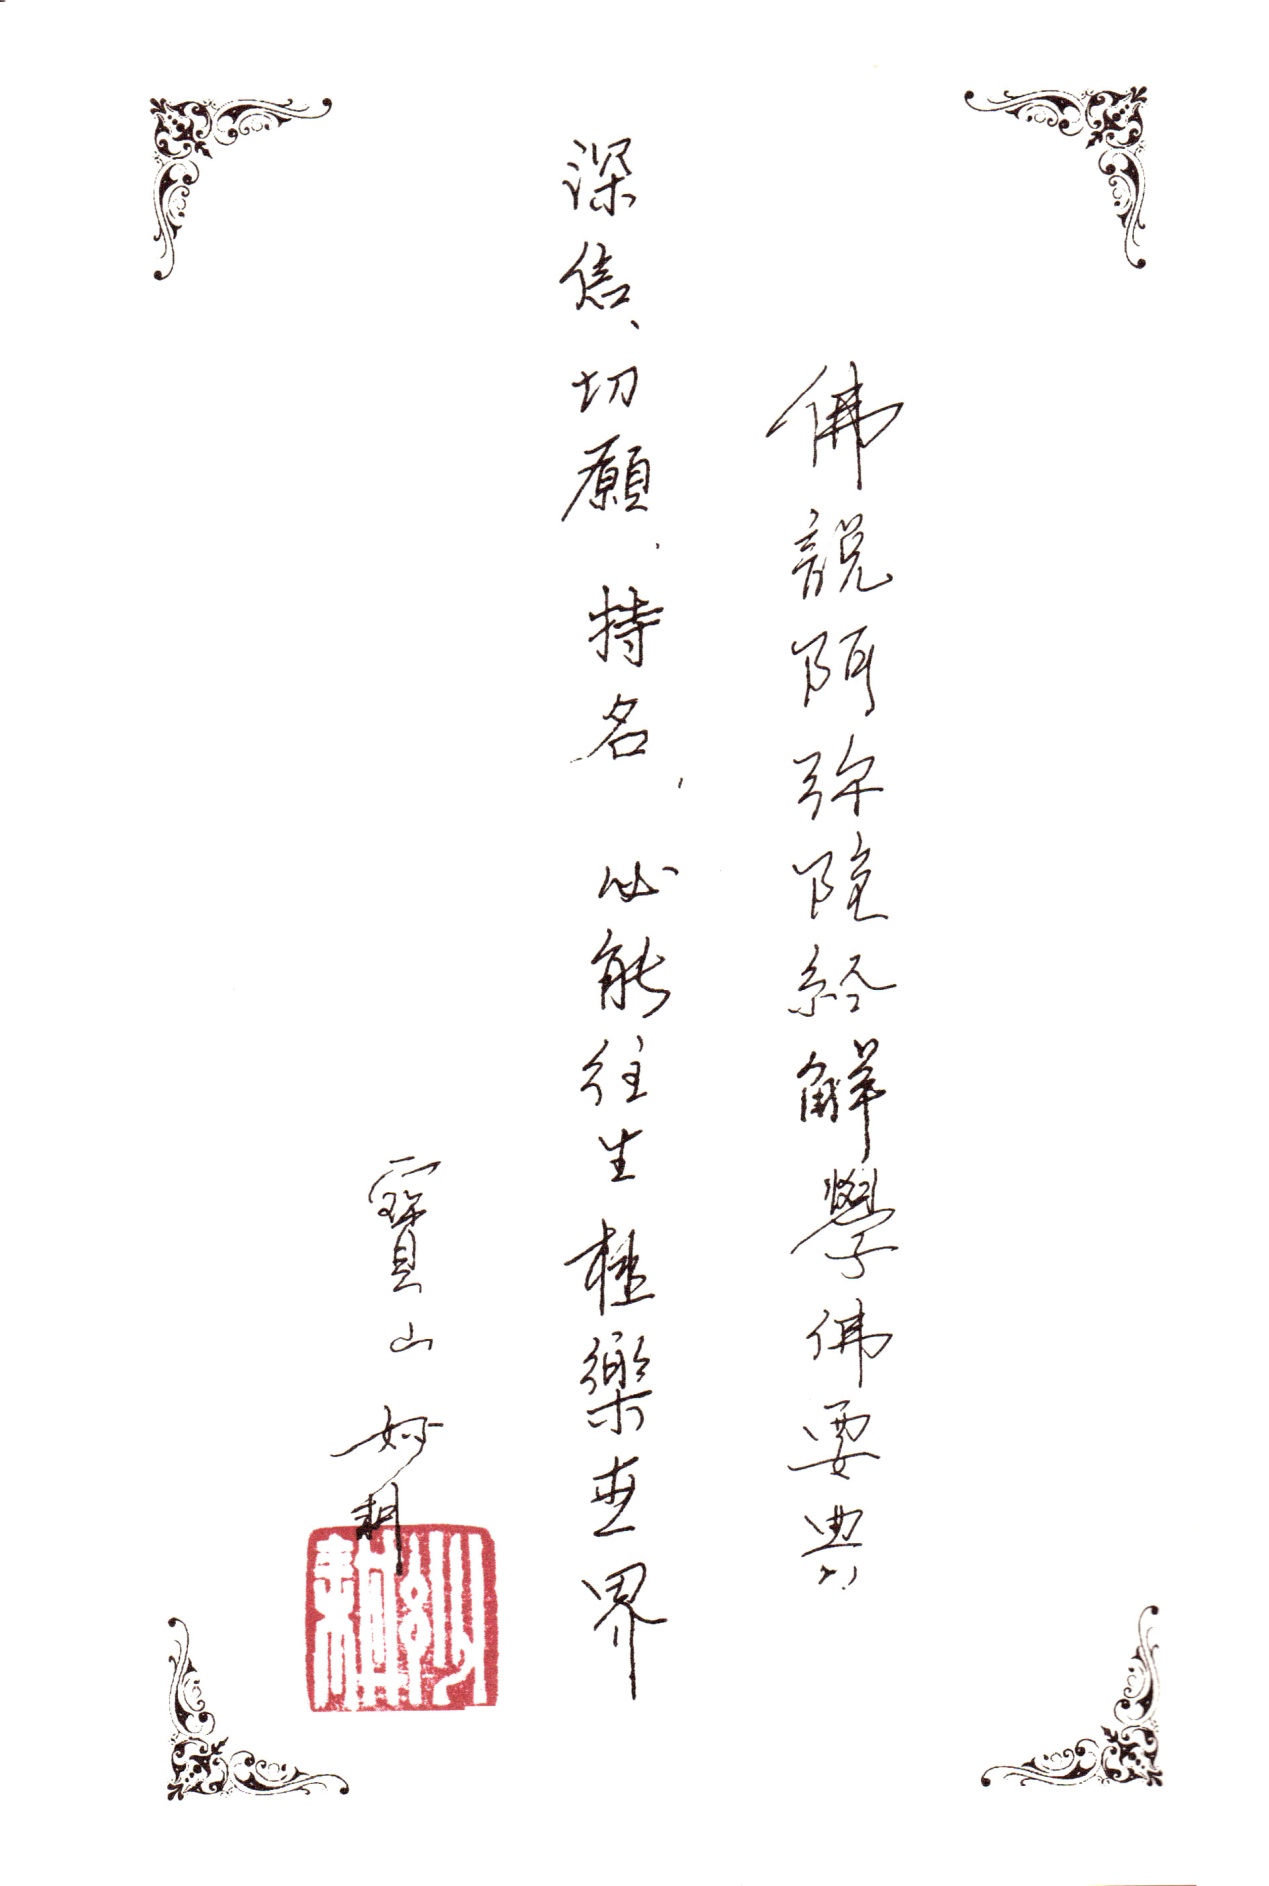 佛說阿弥陀經解學佛要典
深信、切願、持名、必能往生極樂世界
寶山 妙耕
妙耕